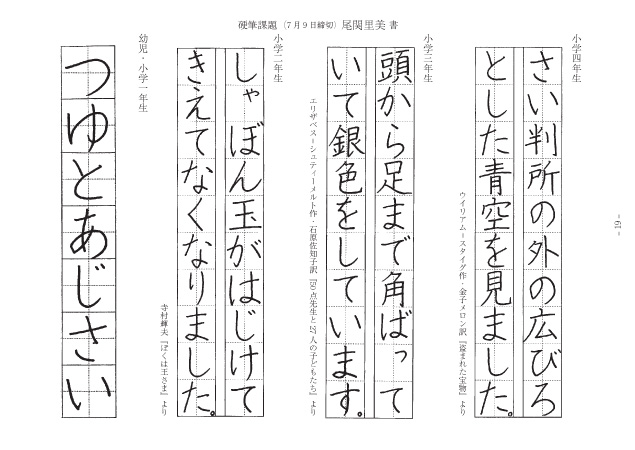 硬筆課題（7月9日締切）尾関里美 書
小学四年生
さい判所の外の広びろ
とした青空を見ました。
ウイリアム＝スタイグ作・金子メロン訳『盗まれた宝物』より
小学三年生
頭から足まで角ばって
いて銀色をしています。
エリザベス＝シュティーメルト作・石原佐知子訳『50点先生と27人の子どもたち』より
小学二年生
しゃぼん玉がはじけて
きえてなくなりました。
寺村輝夫『ぼくは王さま』より
幼児・小学一年生
つゆとあじさい
- 19 -